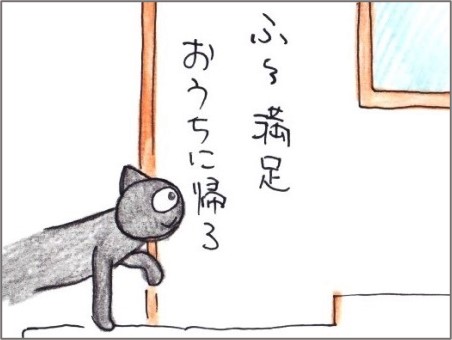 ふ〜満足
おうちに帰ろ